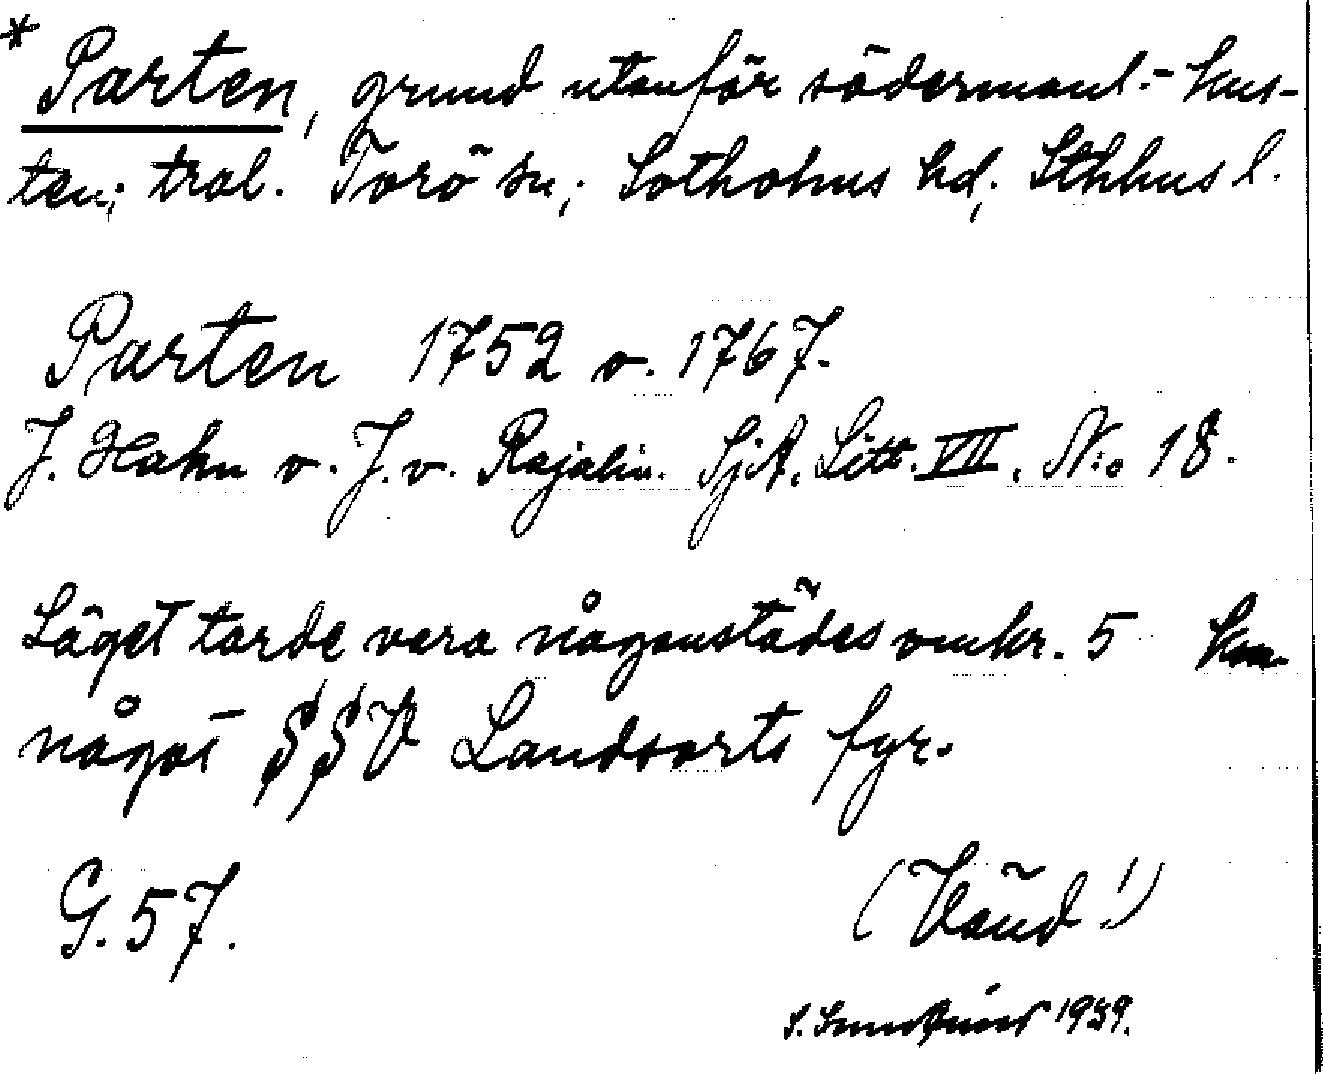 * Parten, grund utanför södermanl.-kus-
ten; trol. Torö sn; Sotholms hd; Sthlms l.
Parten 1752 o. 1767.
J. Hahn o. J. v. Rajalin. SjA. Litt. VII. N:o 18.
Läget torde vara någonstädes omkr. 5 km
något SSV Landsorts fyr.
G. 57.
(Vänd!)
1939.